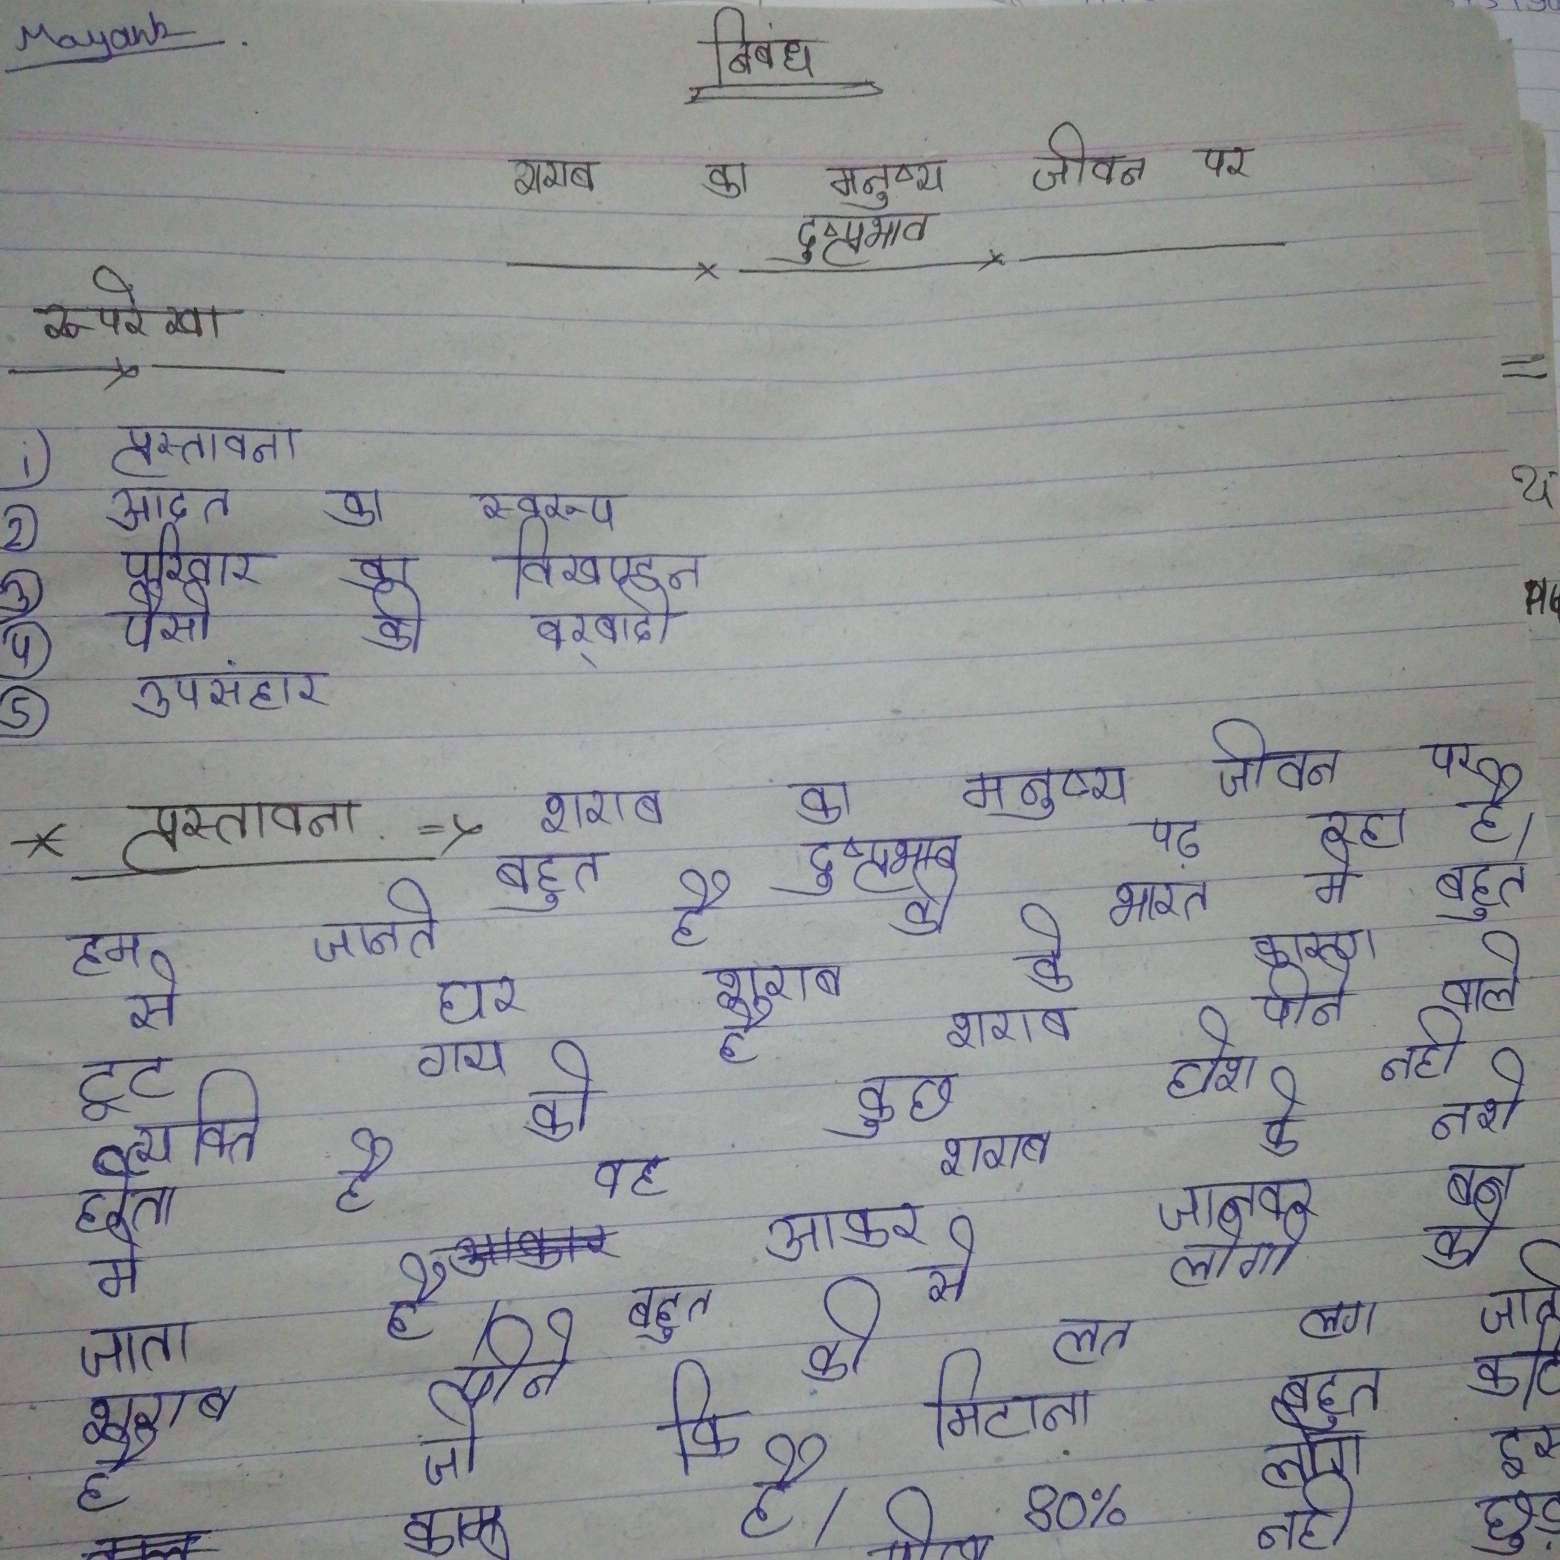 Mayank
निबंध
शराब का मनुष्य जीवन पर
दुष्प्रभाव
रूपरेखा
1) प्रस्तावना
2) आदत का स्वरूप
3) परिवार का विखण्डन
4) पैसो की बर्बादी
5) उपसंहार
* प्रस्तावना => शराब का मनुष्य जीवन पर
बहुत दुष्प्रभाव पढ़ रहा है।
हम जानते है की भारत मे बहुत
से घर शराब के कारण
टूट गये है शराब पीने वाले
व्यक्ति को कुछ होश नही
होता है वह शराब के नशे
मे आकर जानवर बन
जाता है। बहुत से लोगो को
शराब पीने की लत लग जाती
है जो कि मिटाना बहुत
है। 80% लोग इस
नही